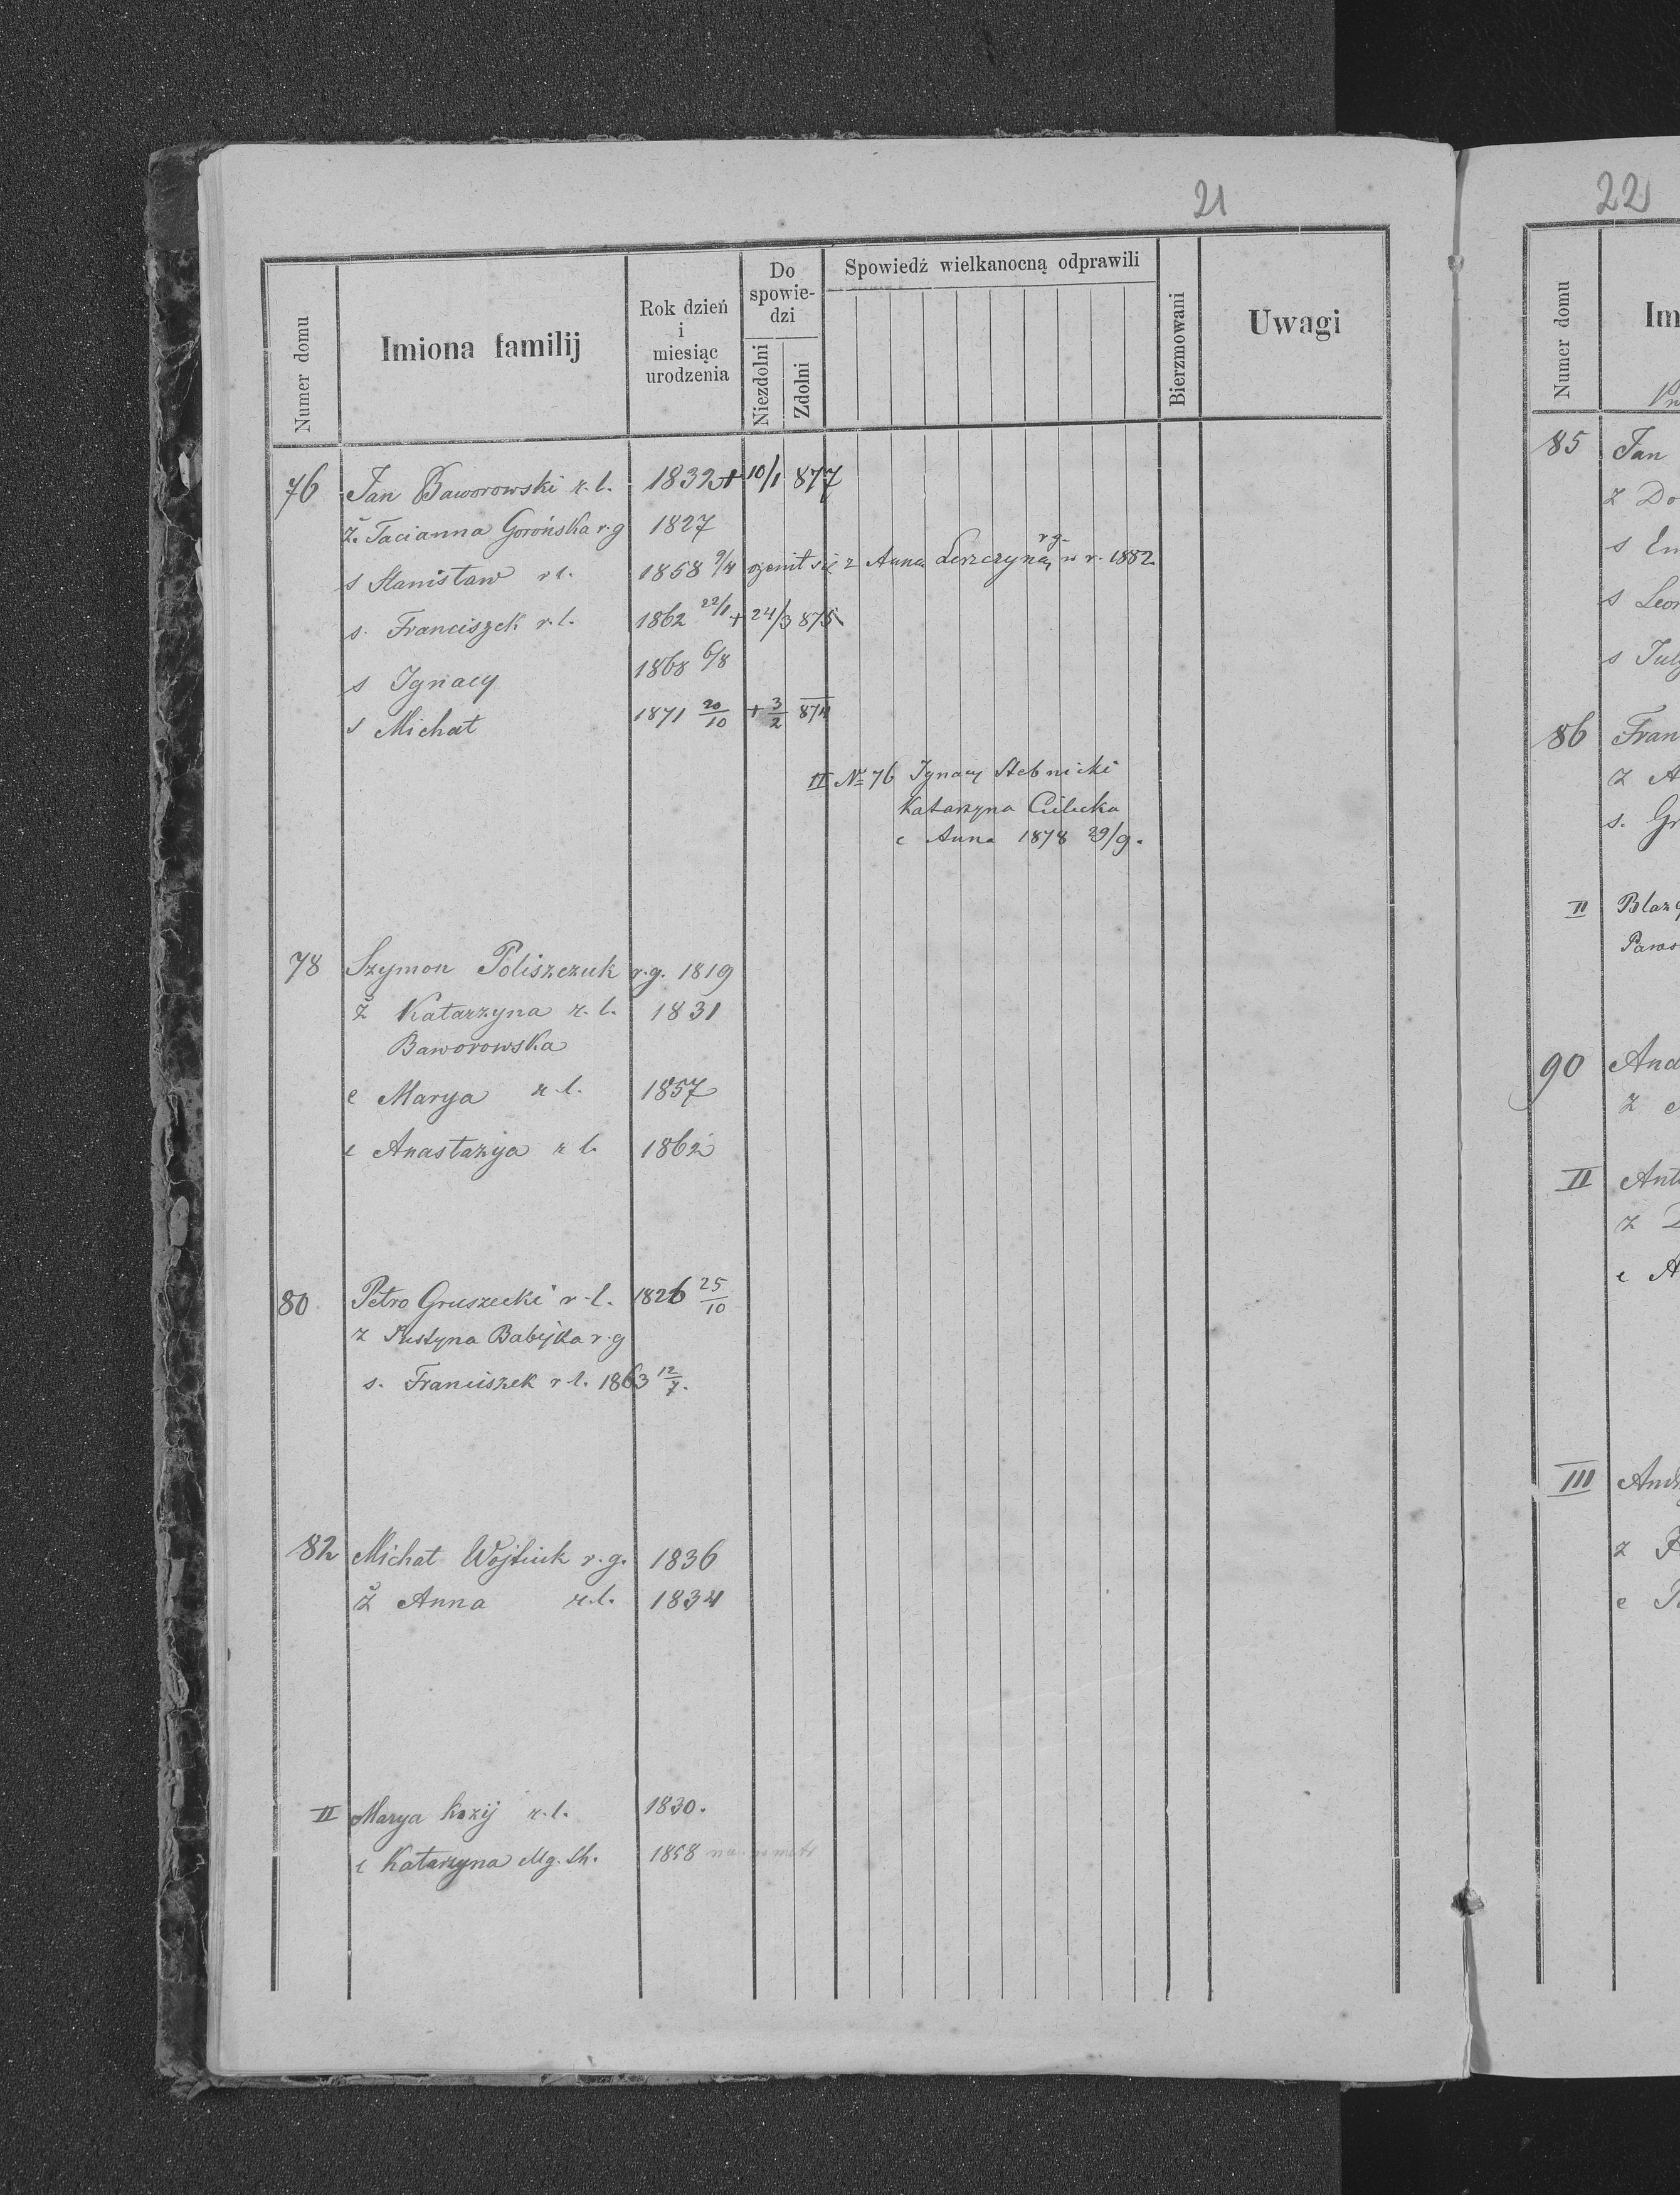 21
Numer domu
Imiona familij
Rok dzień
i
miesiąc
urodzenia
Do
spowie-
dzi
Niezdolni
Zdolni
Spowiedź wielkanocną odprawili
Bierzmowani
Uwagi
76 Jan Baworowski r. l. 1832 + 10/1 877
ż. Tacianna Gorońska r. g 1827
s Stanisław r l. 1858 9/4 ożenił się z Anną r g. w r. 1882.
s. Franciszek r. l. 1862 22/1 + 24/3 875
s Ignacy 1868 6/8
s Michał 1871 20/10 + 3/2 874
II № 76 Ignacy Stebnicki
Katarzyna
c Anna 1878 29/9.
78 Szymon Poliszczuk r. g. 1819
ż Katarzyna r. l. 1831
Baworowska
c Marya r. l. 1857
c Anastazya r l. 1862
80 Petro Gruszecki r. l. 1826 25/10
z Justyna Babijka r. g
s. Franciszek r l. 1863 12/7.
82 Michał Wojtiuk r. g. 1836
ż Anna r. l. 1834
II Marya Kozij r. l. 1830.
c Katarzyna 1858
22
Numer domu
Im
85 Jan
z Do
s Em
s Leon
s July
86 Fran
z A
s. Gr
II Blaży
Paras
90 And
z
II Anto
z
c A
III Andr
z
c